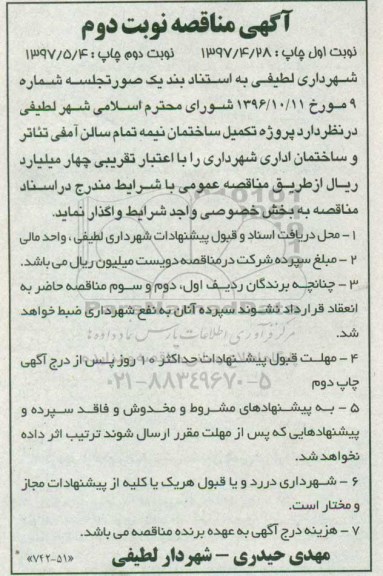 آگهی مناقصه نوبت دوم
نوبت اول چاپ : ۱۳۹۷/۴/۲۸ نوبت دوم چاپ : ۱۳۹۷/۵/۴
شهرداری لطیفی به استناد بند یک صورتجلسه شماره
۹ مورخ ۱۳۹۶/۱۰/۱۱ شورای محترم اسلامی شهر لطیفی
در نظر دارد پروژه تکمیل ساختمان نیمه تمام سالن آمفی تئاتر
و ساختمان اداری شهرداری را با اعتبار تقریبی چهار میلیارد
ریال از طریق مناقصه عمومی با شرایط مندرج در اسناد
مناقصه به بخش خصوصی واجد شرایط واگذار نماید.
۱ - محل دریافت اسناد و قبول پیشنهادات شهرداری لطیفی ، واحد مالی
۲ - مبلغ سپرده شرکت در مناقصه دویست میلیون ریال می باشد.
۳ - چنانچه برندگان ردیف اول، دوم و سوم مناقصه حاضر به
انعقاد قرارداد نشوند سپرده آنان به نفع شهرداری ضبط خواهد
شد.
۴ - مهلت قبول پیشنهادات حداکثر ۱۰ روز پس از درج آگهی
چاپ دوم
۰۲۱-۸۸۳۴۹۶۷۰-۵
۵ - به پیشنهادهای مشروط و مخدوش و فاقد سپرده و
پیشنهادهایی که پس از مهلت مقرر ارسال شوند ترتیب اثر داده
نخواهد شد.
۶ - شهرداری در رد و یا قبول هریک یا کلیه از پیشنهادات مجاز
و مختار است.
۷ - هزینه درج آگهی به عهده برنده مناقصه می باشد.
مهدی حیدری - شهردار لطیفی «۷۴۲-۵۱»